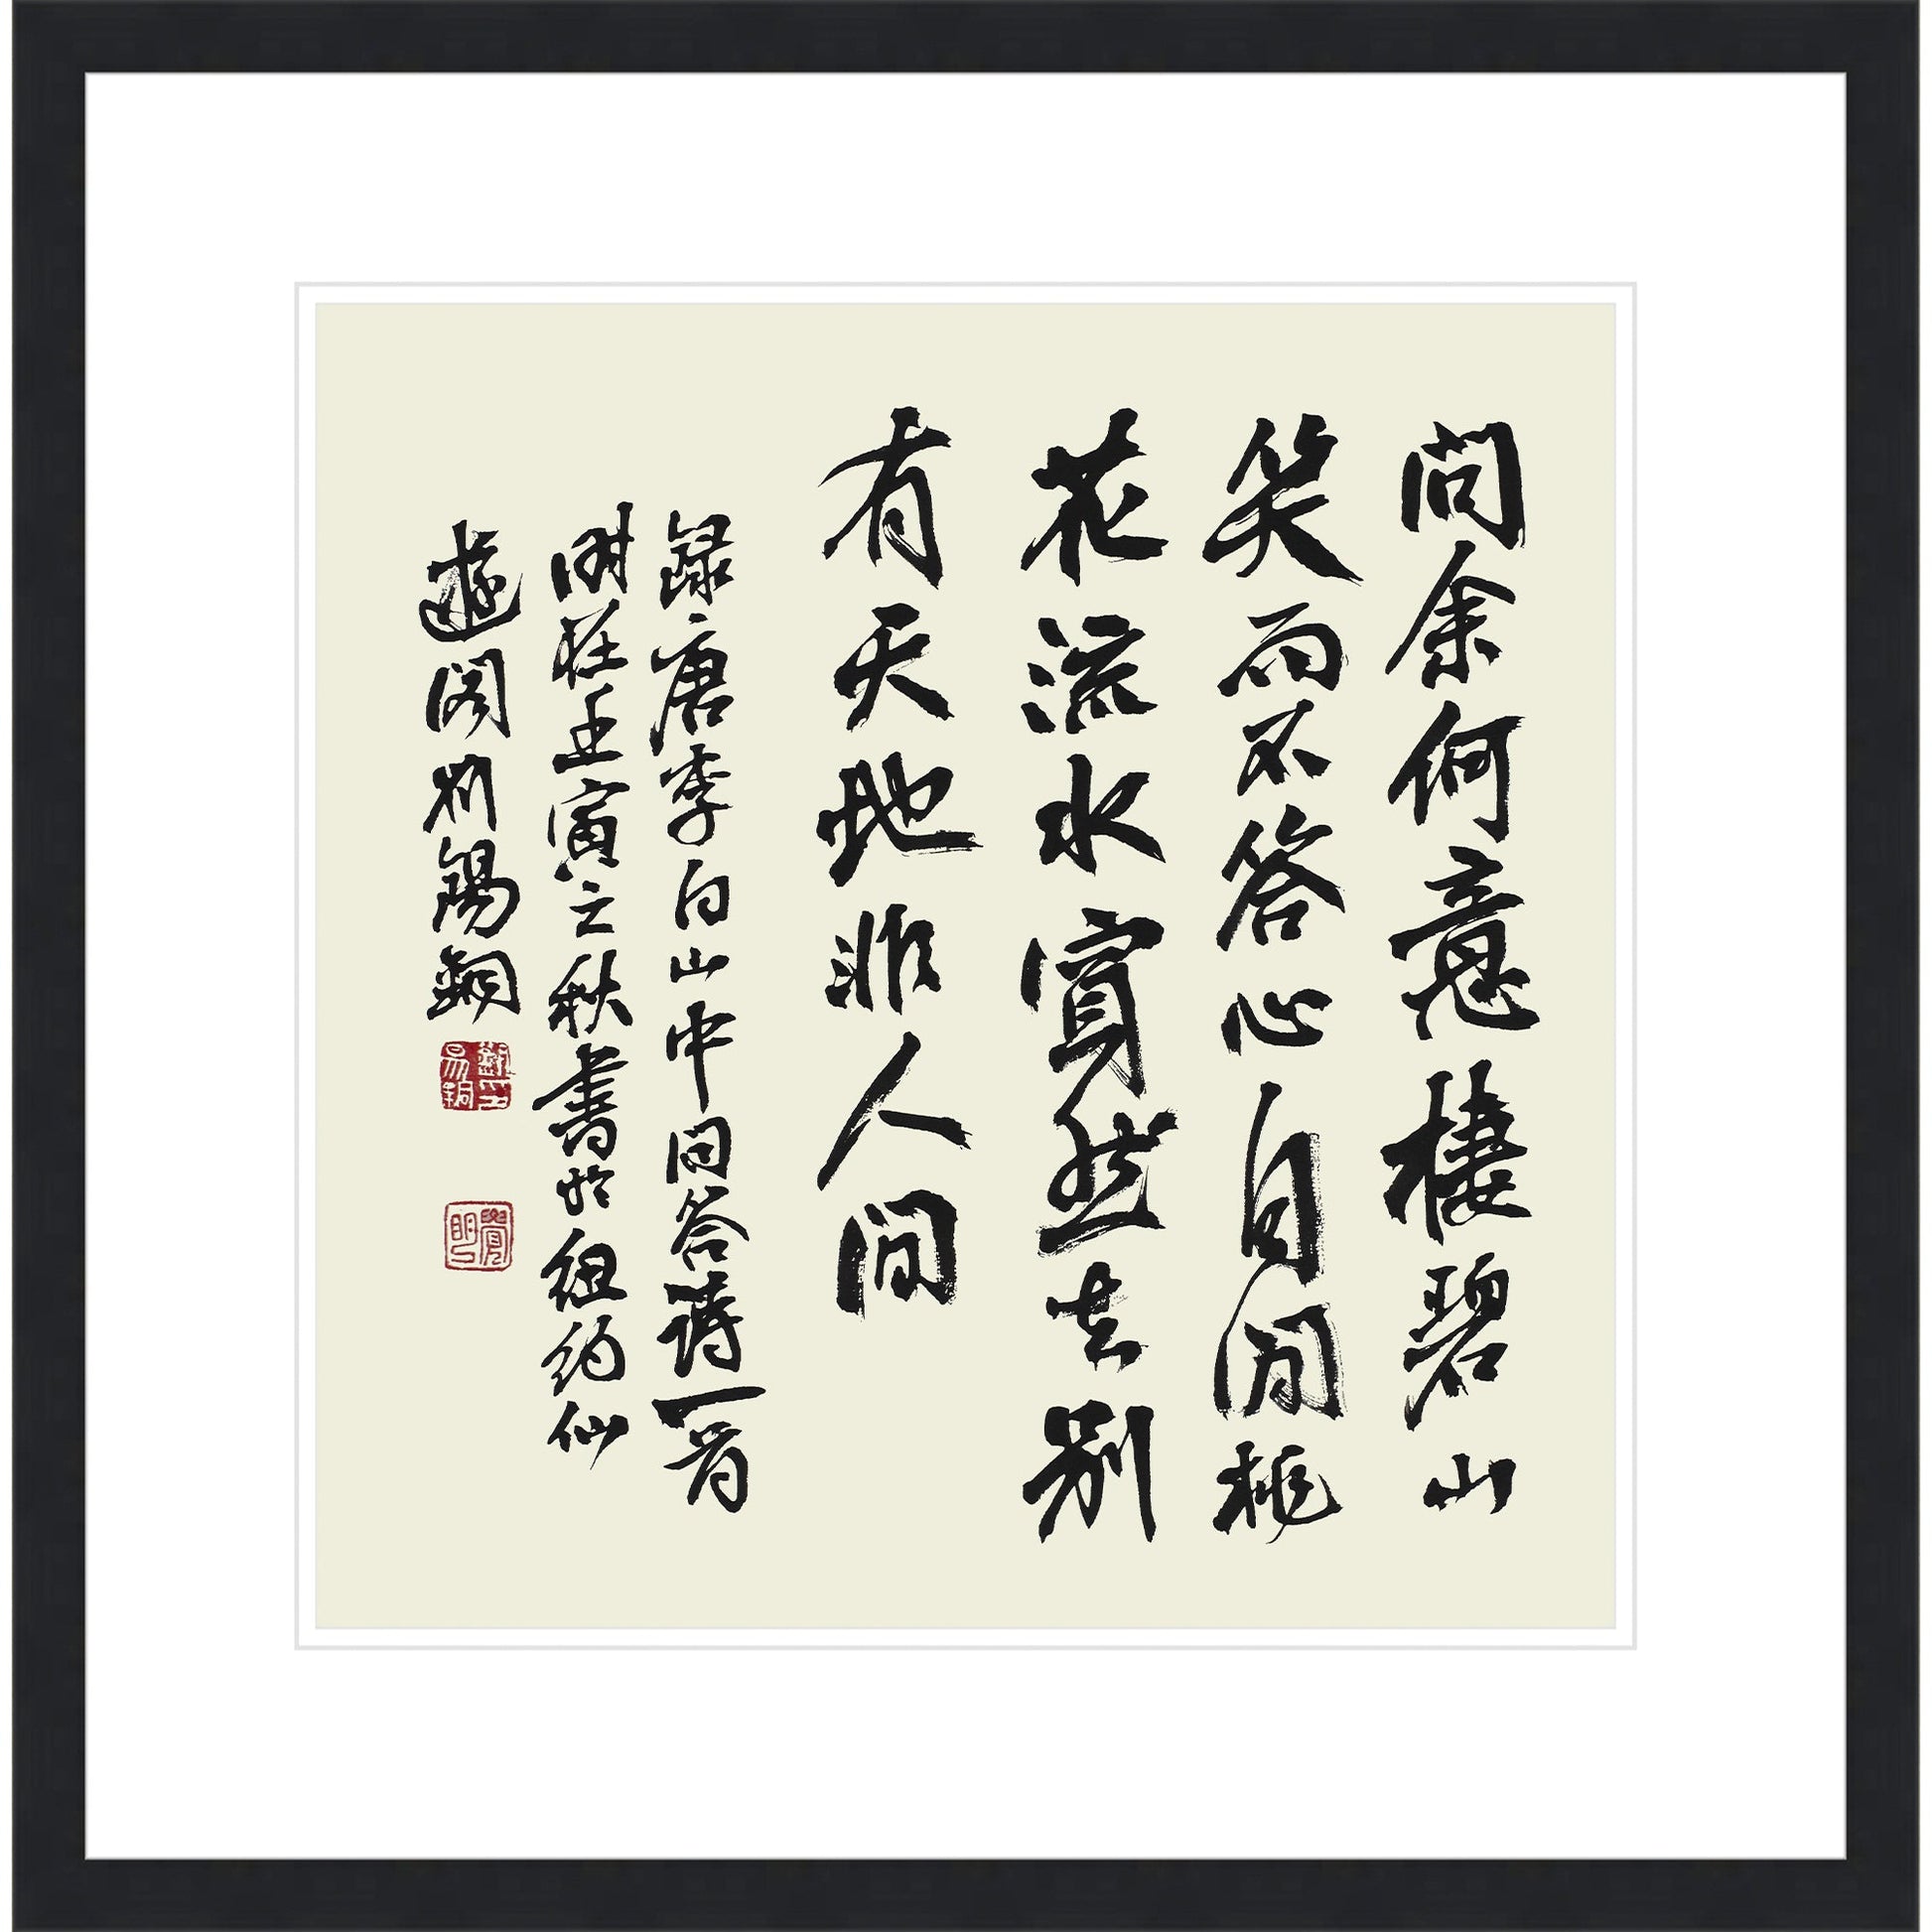 問余何意棲碧山
笑而不答心自閒桃
花流水窅然去別
有天地非人間
録唐李白山中問答詩一首
時在壬寅之秋書於紐約仙
遊閣劉錫銅